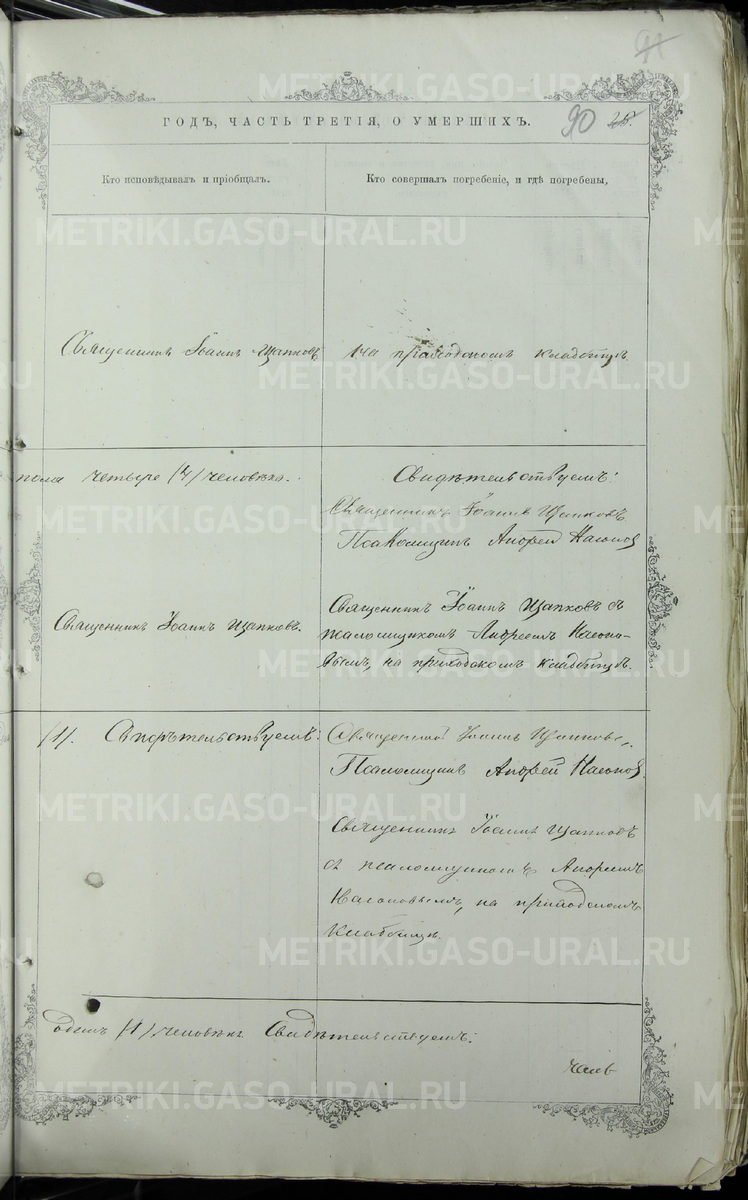 91
ГОДЪ, ЧАСТЬ ТРЕТІЯ, О УМЕРШИХЪ.
90
Кто исповѣдывалъ и пріобщалъ.
Кто совершалъ погребеніе, и гдѣ погребены,
Священникъ Іоаннъ Щапковъ
на приходскомъ кладбищѣ
пола четыре /4/ человѣка.
Свидѣтельствуемъ:
Священникъ Іоаннъ Щапковъ
Псаломщикъ Андрей Насонов
Священникъ Іоаннъ Щапковъ.
Священникъ Іоаннъ Щапковъ съ
псаломщикомъ Андреемъ Насоно-
вымъ, на приходскомъ кладбищѣ.
/1/. Свидѣтельствуемъ:
Священникъ Іоаннъ Щапковъ.
Псаломщикъ Андрей Насонов.
Священникъ Іоаннъ Щапковъ
съ псаломщикомъ Андреемъ
Насоновымъ, на приходскомъ
кладбищѣ.
одинъ /1/ человѣкъ. Свидѣтельствуемъ:
METRIKI.GASO-URAL.RU